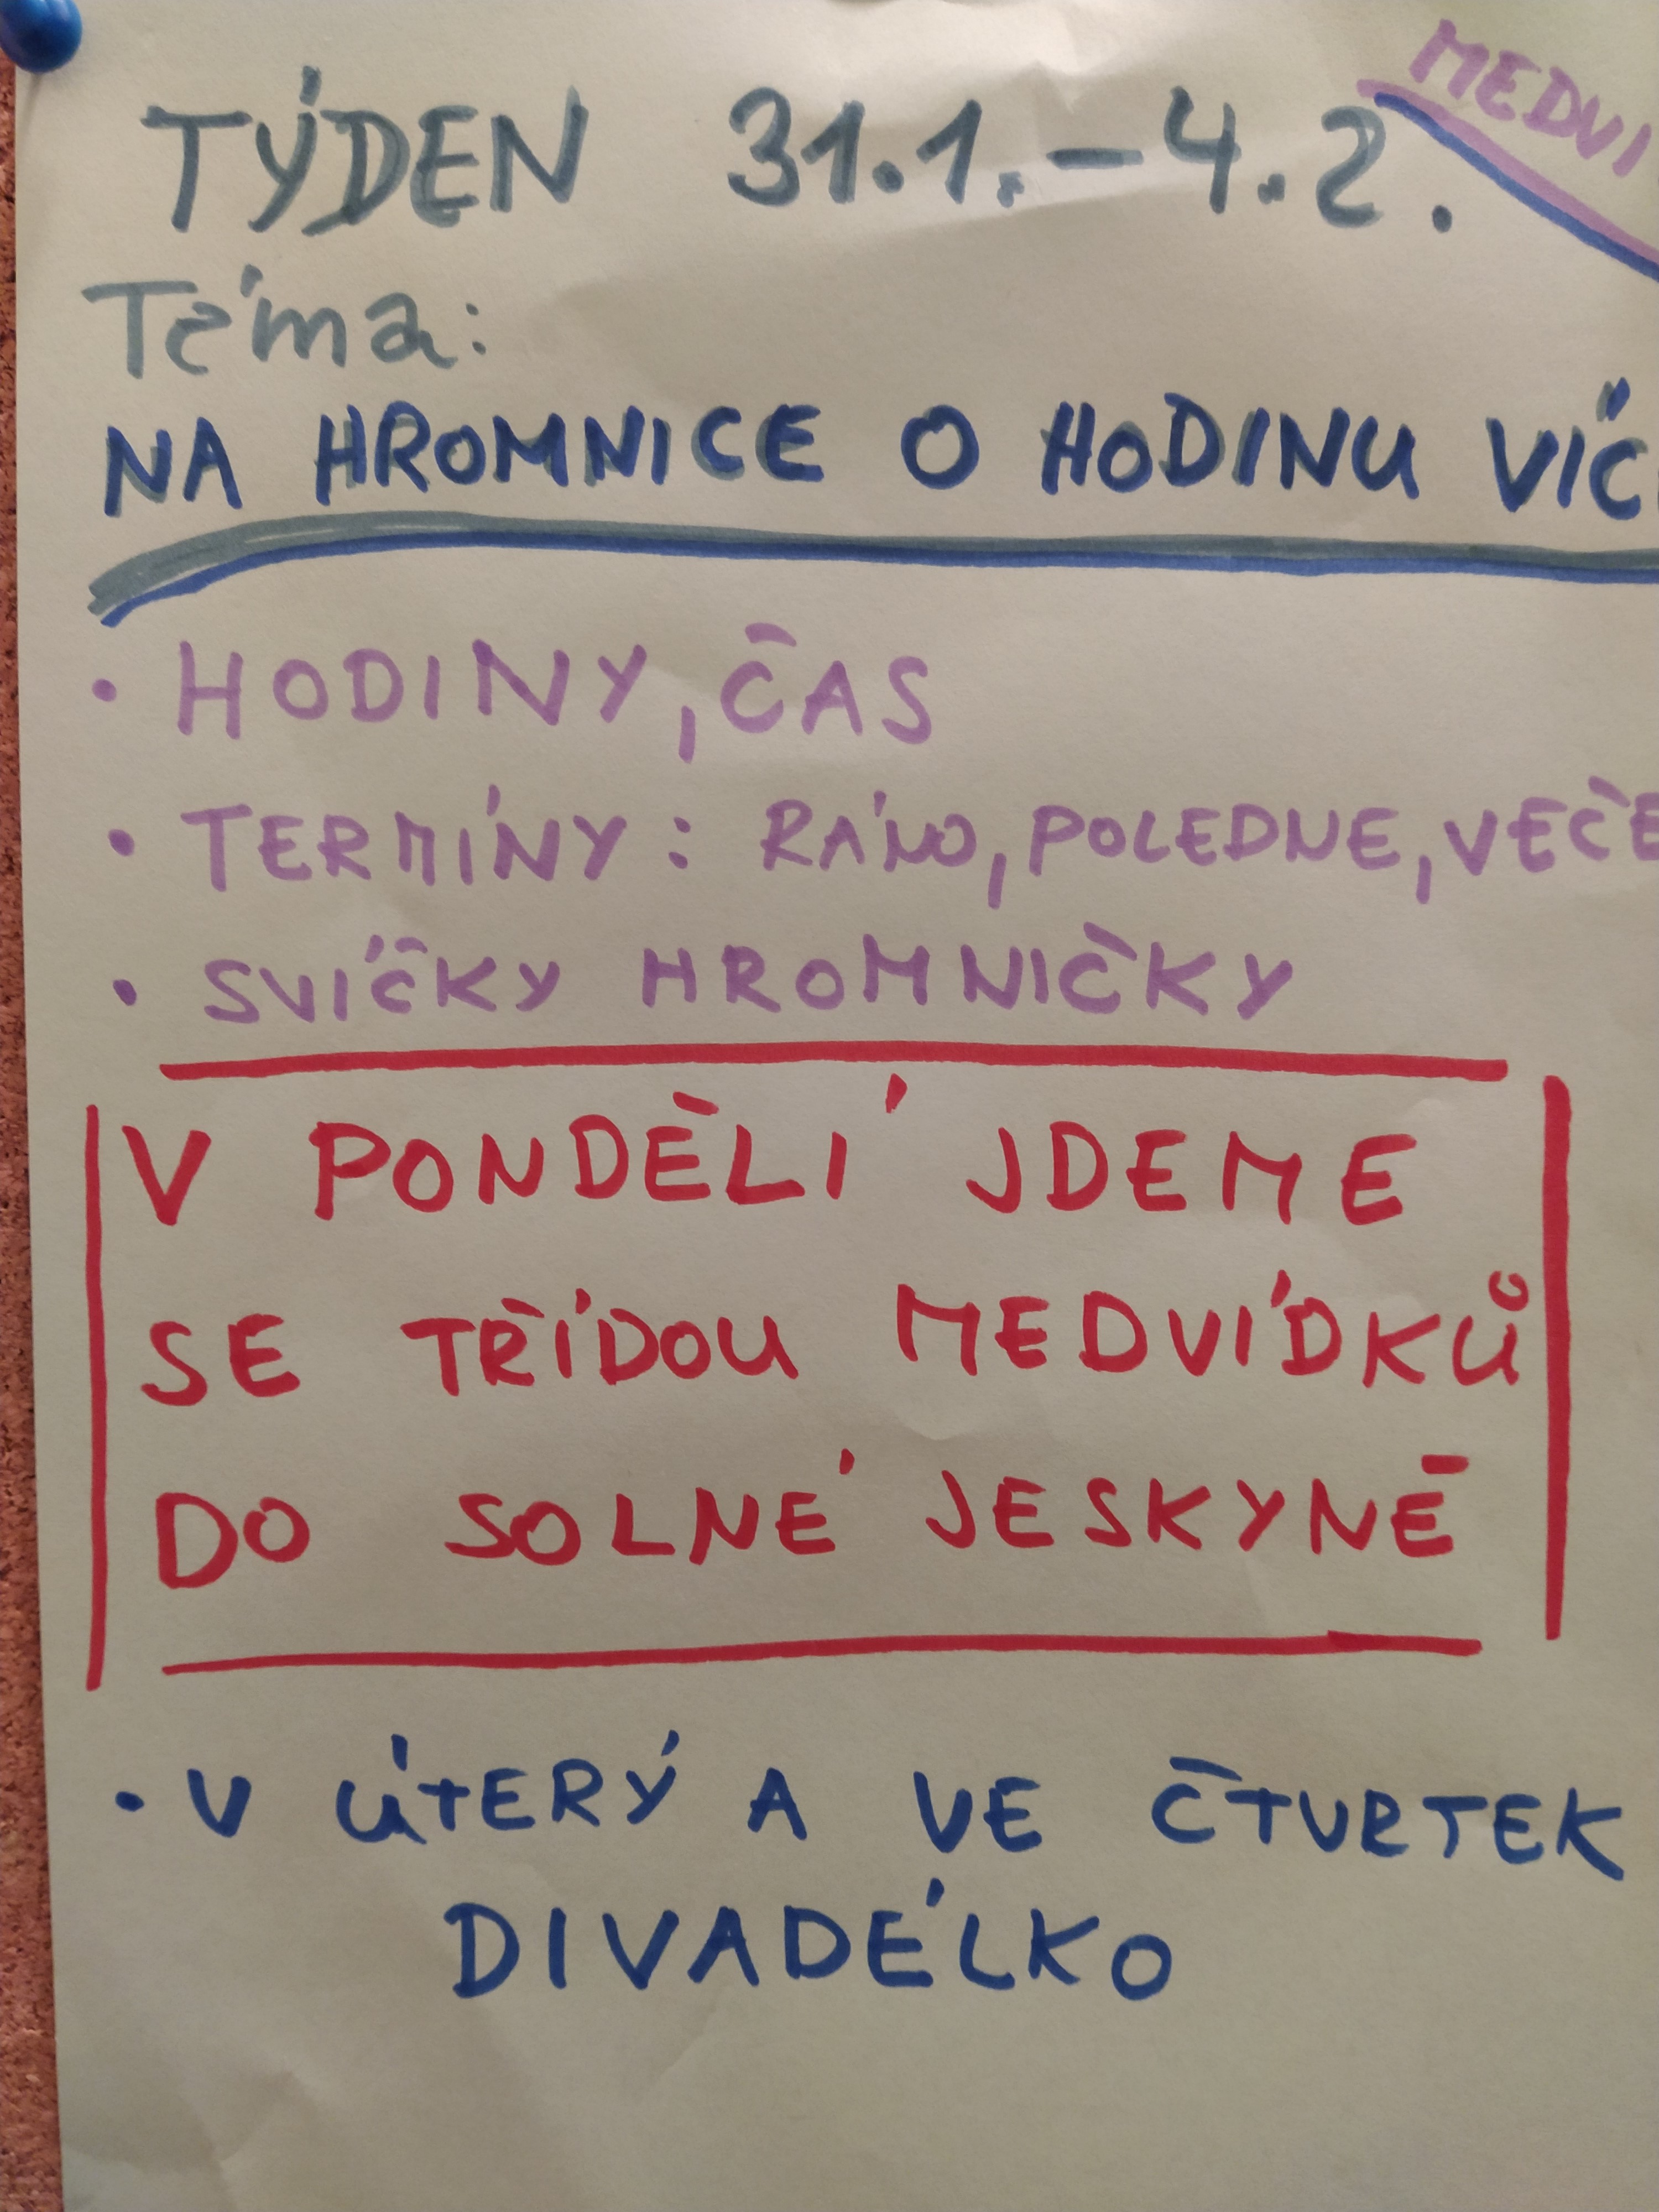 MEDVÍ
TÝDEN 31.1.-4.2.
Téma:
NA HROMNICE O HODINU VÍC
• HODINY, ČAS
• TERMÍNY: RÁNO, POLEDNE, VEČE
• SVÍČKY HROMNIČKY
V PONDĚLÍ JDEME
SE TŘÍDOU MEDVÍDKŮ
DO SOLNÉ JESKYNĚ
• V ÚTERÝ A VE ČTVRTEK
DIVADÉLKO